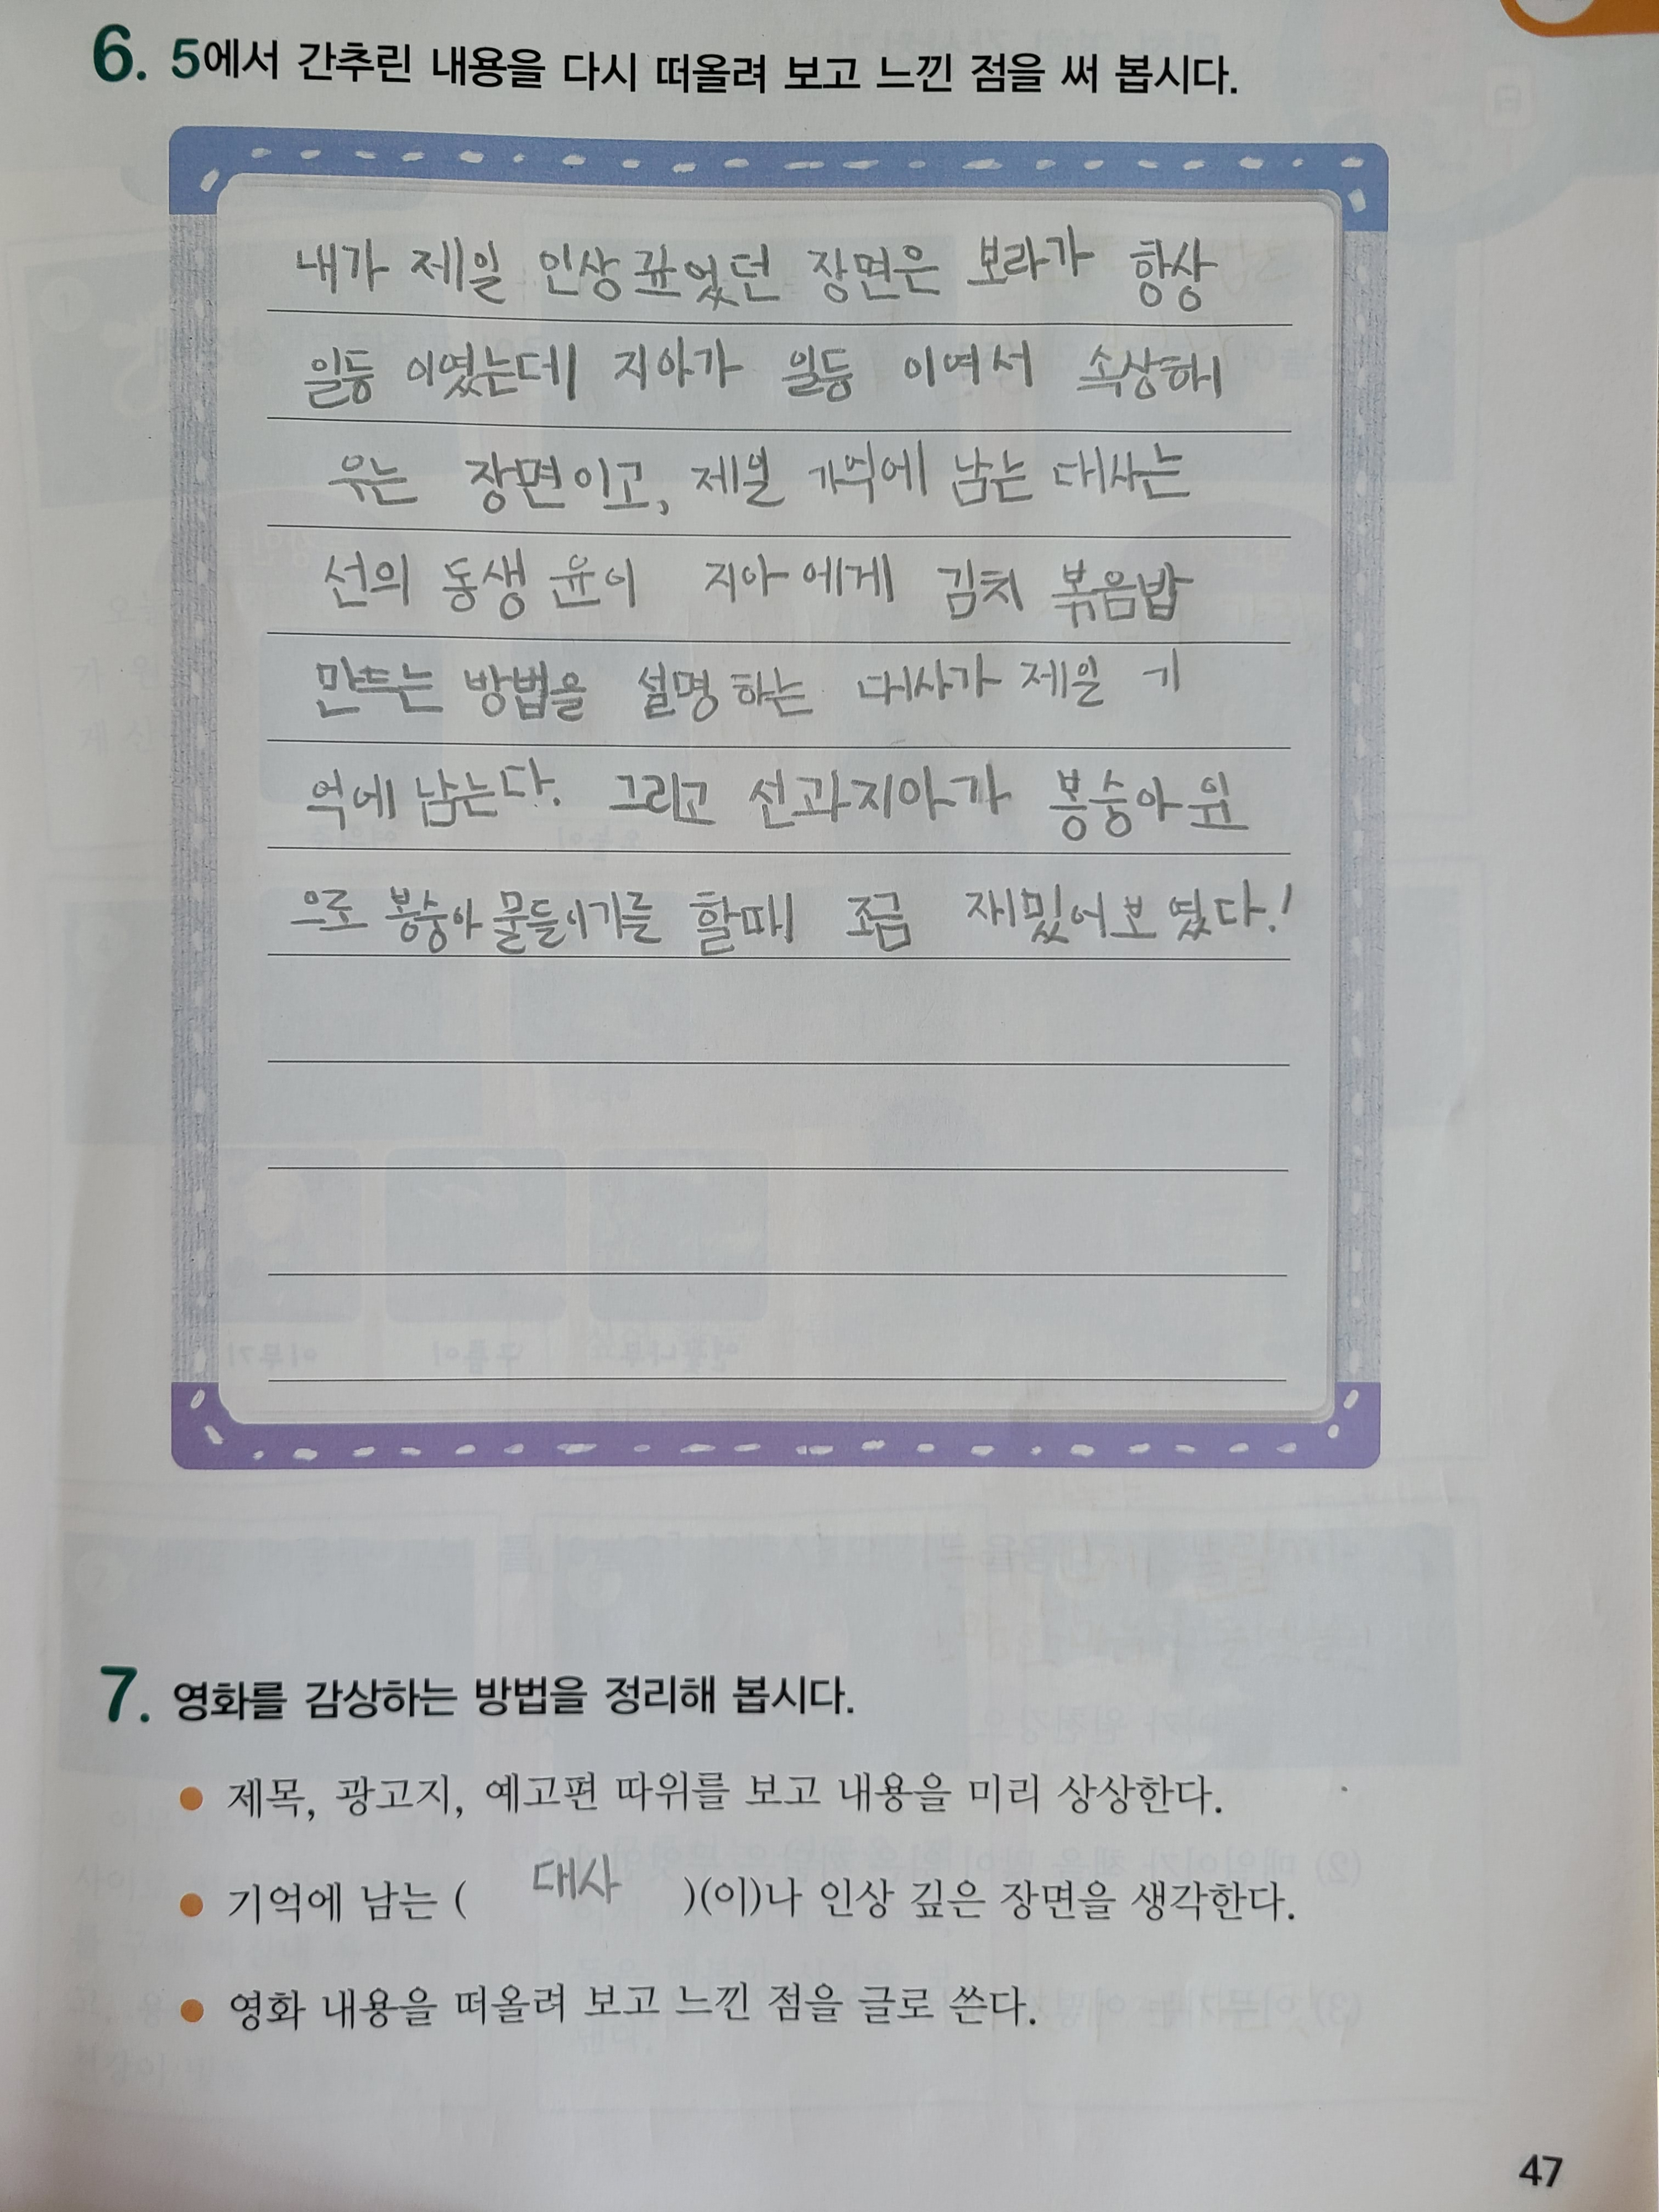 6. 5에서 간추린 내용을 다시 떠올려 보고 느낀 점을 써 봅시다.
내가 제일 인상 깊었던 장면은 보라가 항상
일등 이였는데 지아가 일등 이여서 속상해
우는 장면이고, 제일 기억에 남는 대사는
선의 동생 윤이 지아 에게 김치 볶음밥
만두는 방법을 설명 하는 대사가 제일 기
억에 남는다. 그리고 선과 지아가 봉숭아 잎
으로 봉숭아 물들이기를 할때 조금 재밌어 보였다!
7. 영화를 감상하는 방법을 정리해 봅시다.
● 제목, 광고지, 예고편 따위를 보고 내용을 미리 상상한다.
● 기억에 남는 ( 대사 )(이)나 인상 깊은 장면을 생각한다.
● 영화 내용을 떠올려 보고 느낀 점을 글로 쓴다.
47